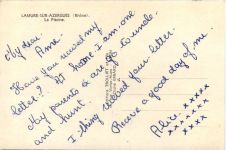 LAMURE-SUR-AZERGUES (Rhône).
La Piscine.
My dear
Anne.
Have you received my
letter? At home I am one
My parents a are go to uncle.
and hunt.
I thing received your letter.
Receve a good day of me
Alice.
xxxxx
xxxxxx
xxxxx